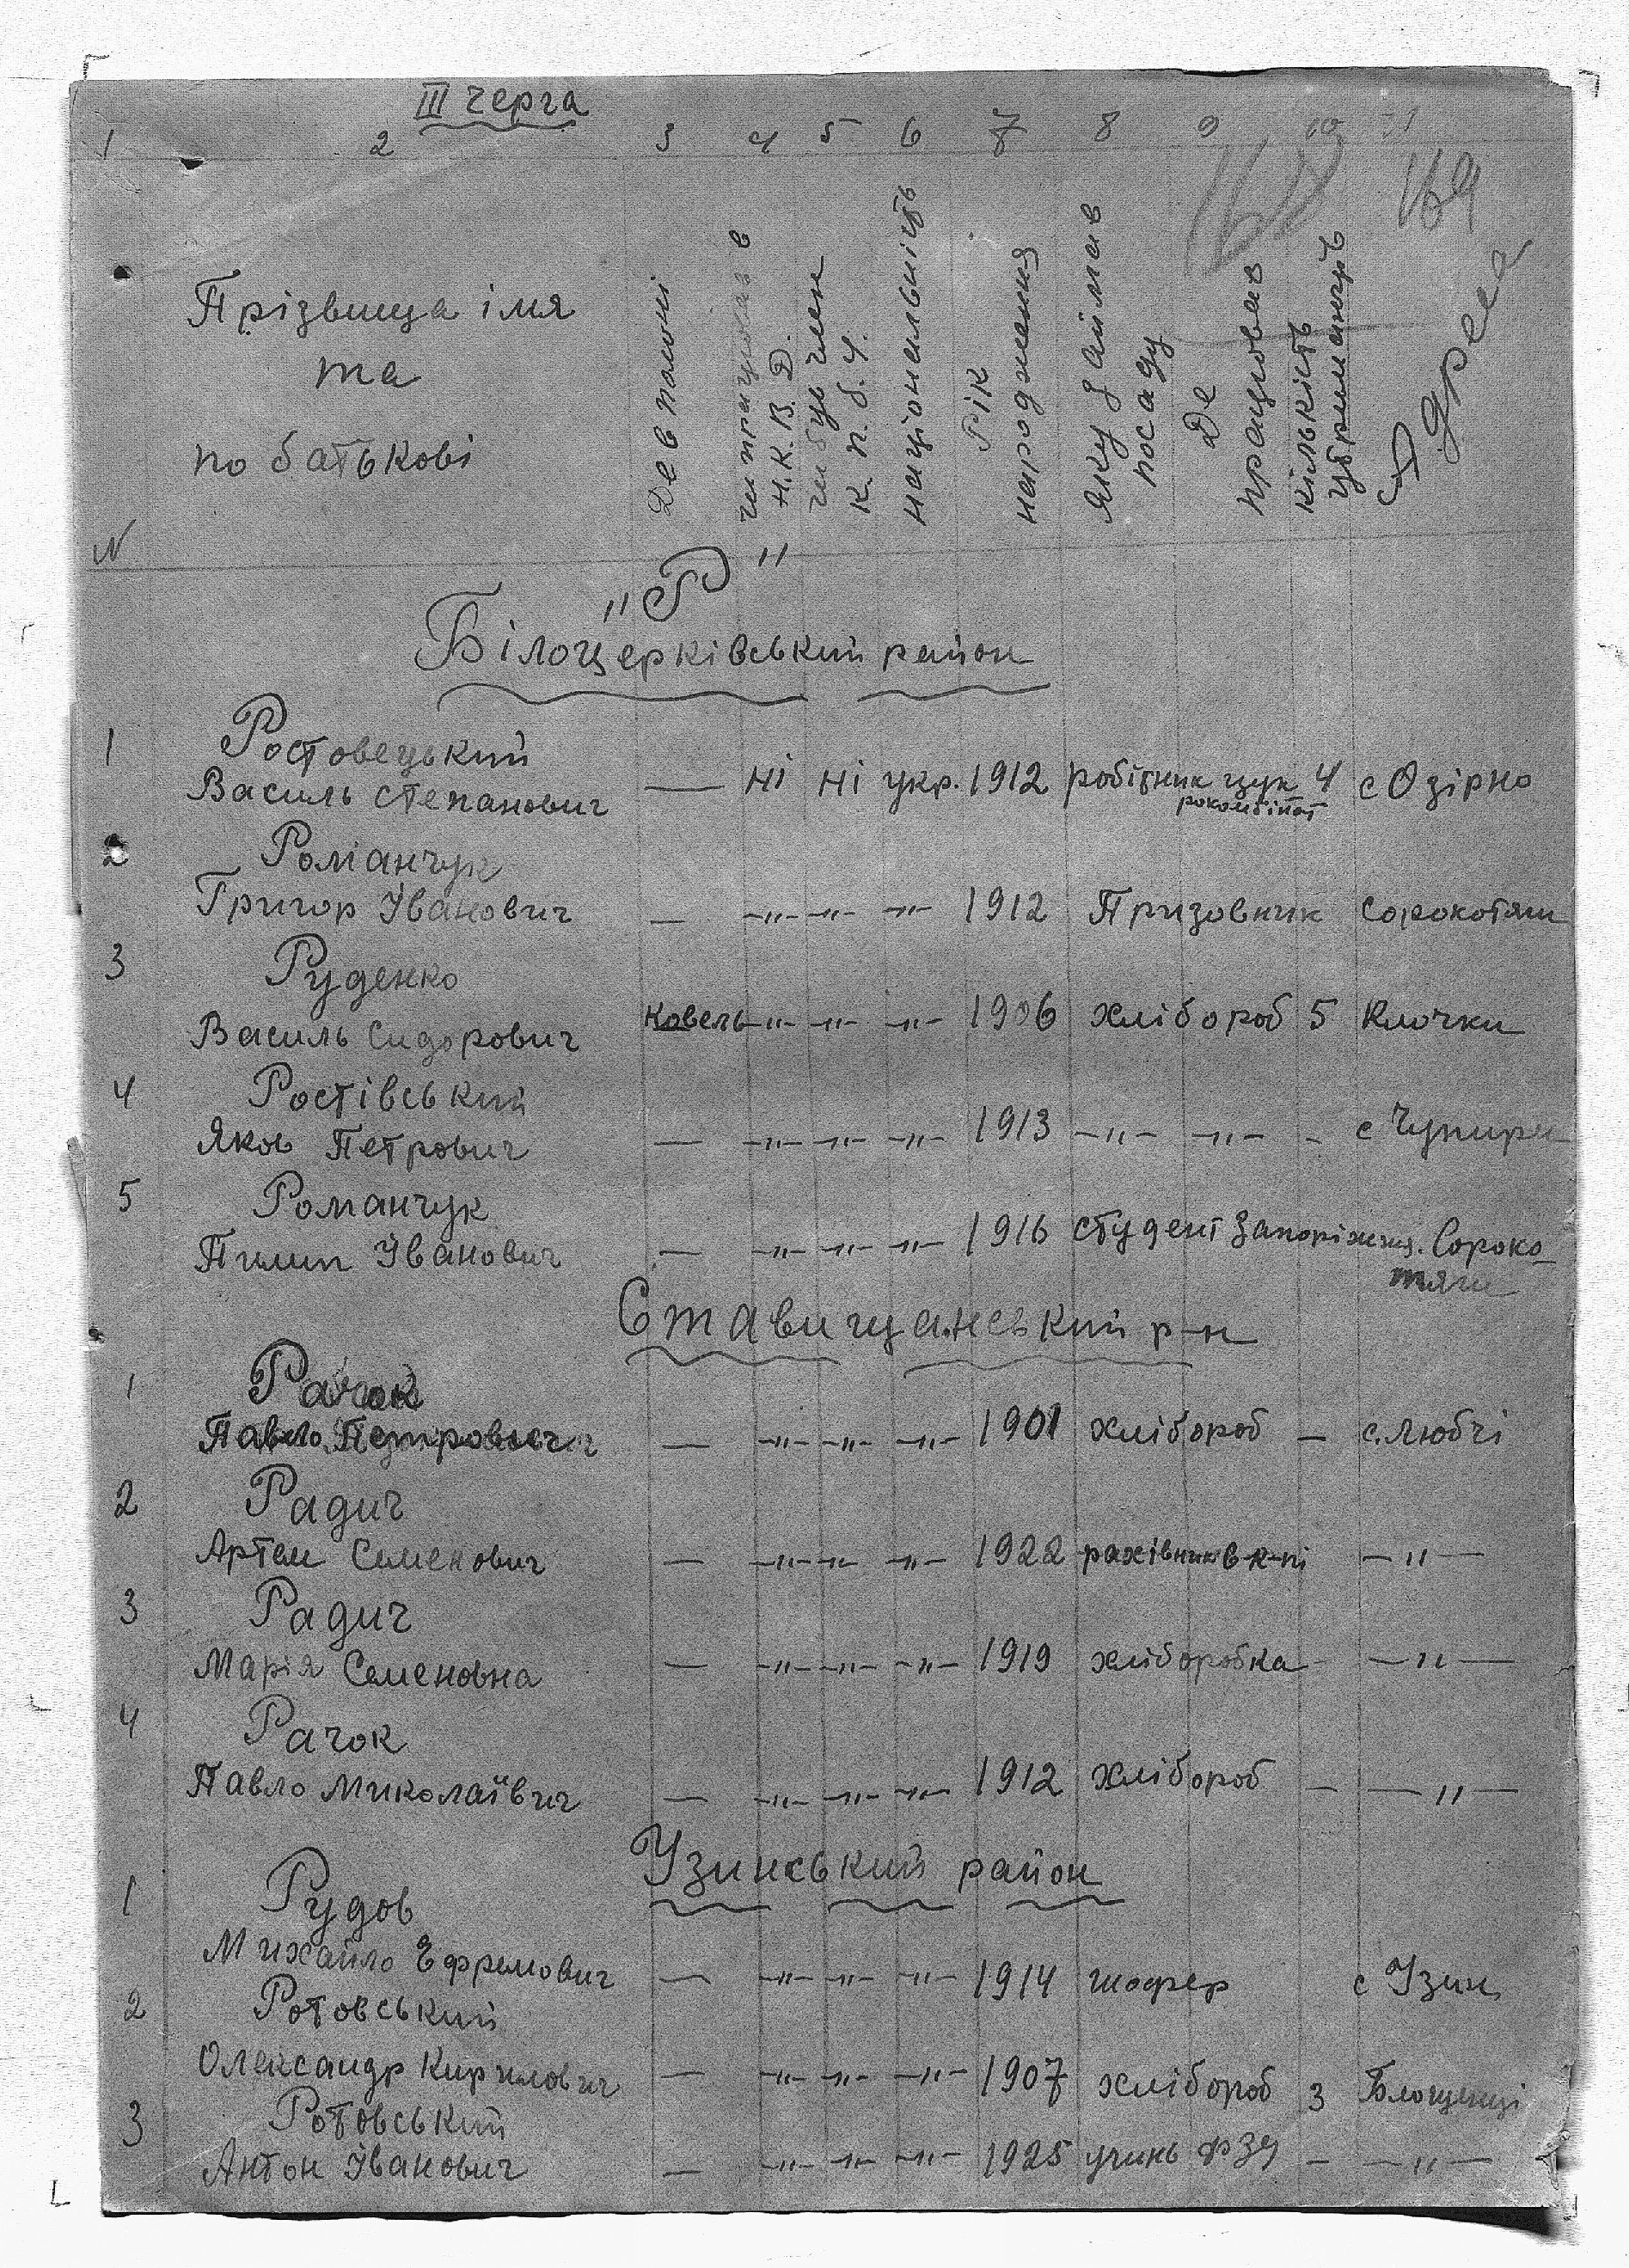 III черга
1 2 3 4 5 6 7 8 9 10 11
169
Прізвища імя
та
по батькові
N
Де в полоні
чи працював в
Н.К.В.Д.
чи був член
К.П.б.У.
національність
Рік
народження
Яку займав
посаду
Де
працював
кількість
утриманців
Адреса
"Р"
Білоцерківський район
1 Ростовецький
Василь Степанович — ні ні укр. 1912 робітник цук 4 с Озірно
рокомбінат
2 Романчук
Григор Іванович — -"- -"- -"- 1912 Призовник Сорокотяги
3 Руденко
Василь Сидорович Ковель -"- -"- -"- 1906 хлібороб 5 Клочки
4 Ростівський
Яков Петрович — -"- -"- -"- 1913 -"- -"- - с Чупири
5 Романчук
Пилип Іванович — -"- -"- -"- 1916 студент Запоріж Сороко-
тяги
Ставищанський р-н
1 Рачок
Павло Петрович — -"- -"- -"- 1901 хлібороб — с. Любчі
2 Радич
Артем Семенович — -"- -"- -"- 1922 рахівник в к-пі —"—
3 Радич
Марія Семеновна — -"- -"- -"- 1919 хліборобка - —"—
4 Рачок
Павло Миколаївич — -"- -"- -"- 1912 хлібороб — —"—
Узинський район
1 Рудов
Михайло Ефремович — -"- -"- -"- 1914 шофер с Узин
2 Ротовський
Олександр Кирилович — -"- -"- -"- 1907 хлібороб 3 Блощинці
3 Ротовський
Антон Іванович — -"- -"- -"- 1925 учинь ФЗУ — —"—